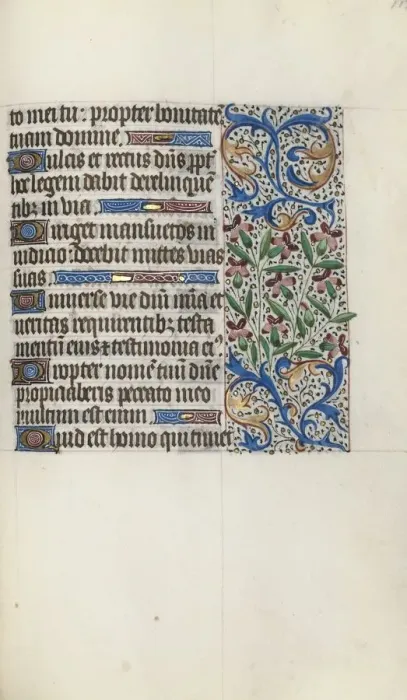 to mei tu: propter bonitatē
tuam domine
Dulcis et rectus dn̄s ꝓpt̄
hoc legem dabit derelinquē
tibꝫ in via
Diriget mansuetos in
iudicio: docebit mittes vias
suas
Uniuerse vie dn̄i mīa et
veritas requirentibꝫ testa
mentū eius ⁊ testimonia eiꝰ
Propter nomē tuū dn̄e
propiciaberis peccato meo
multum est enim
Quid est homo qui timet